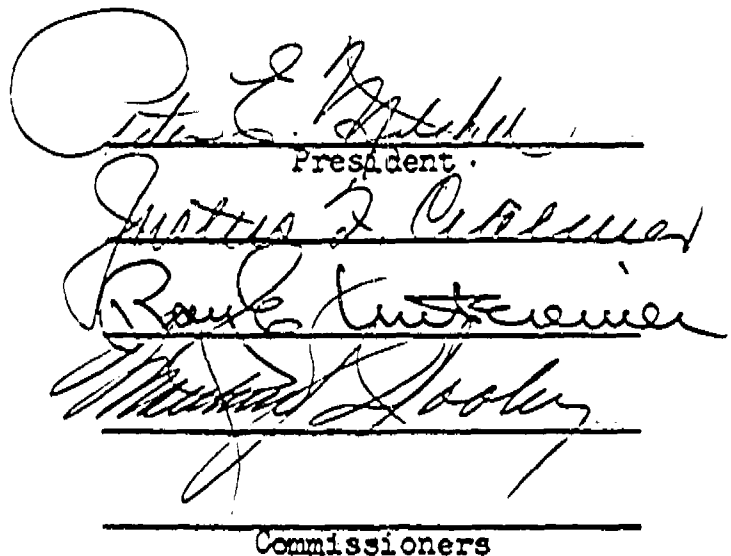 Peter E. Mitchell
President.
Justus F. Craemer
Ray E. Untereiner
Matthew J. Dooley
Commissioners